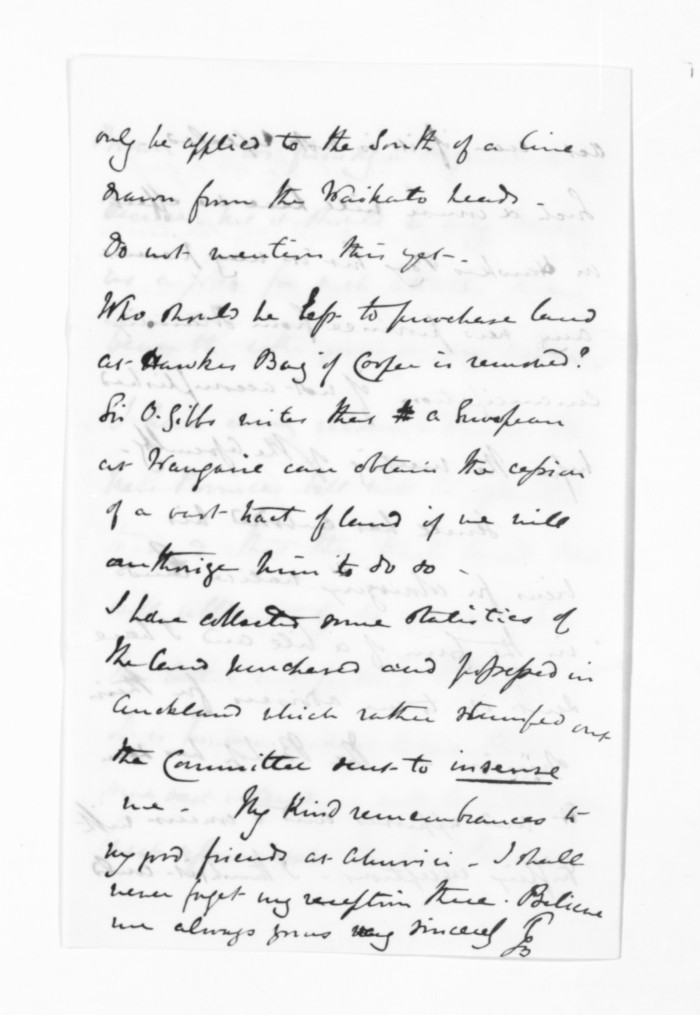 only be applied to the South of a line
drawn from the Waikato heads -
Do not mention this yet -
Who should be left to purchase land
at Hawkes Bay if Cooper is removed?
Sir O. Gibbs writes that a European
at Wangarie can obtain the cession
of a vast tract of land if we will
authorize him to do so -
I have collected some statistics of
the land purchased and possessed in
Auckland which rather stumped out
the Committee sent to insense
me - My Kind remembrances to
my good friends at Ahuriri - I shall
never forget my reception there. Believe
me always yours very sincerely